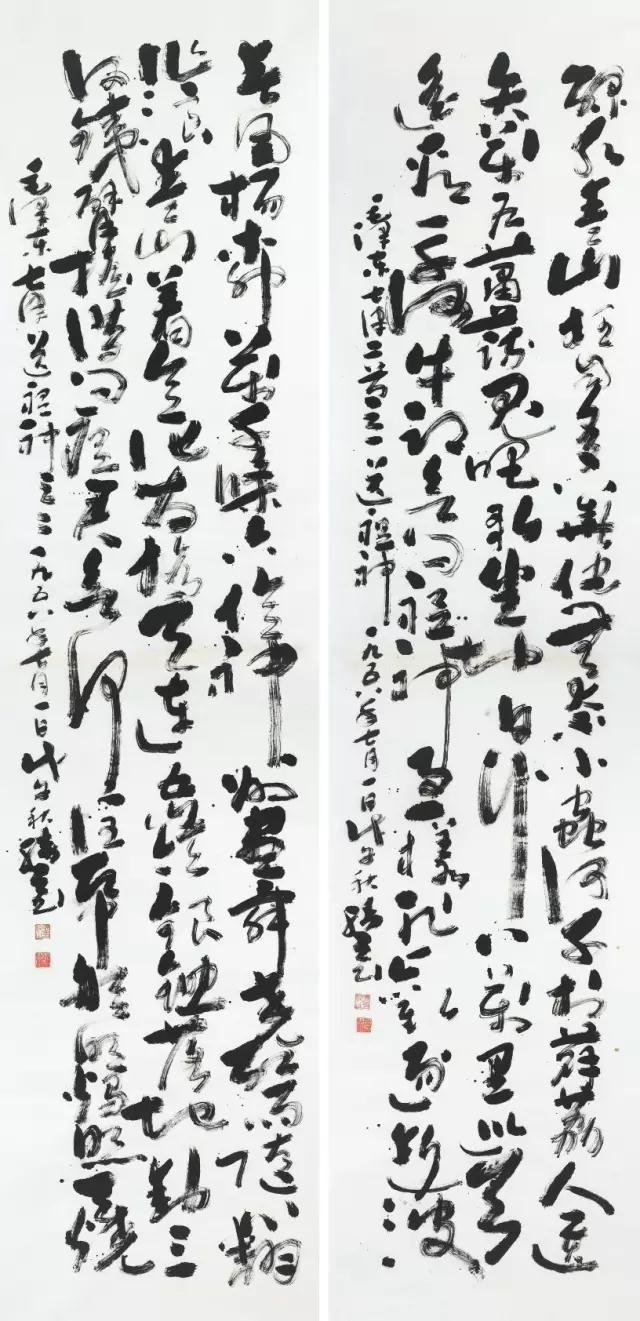 绿水青山枉自多華佗無奈小蟲何千村薜荔人遺
矢萬户蕭疏鬼唱歌坐地日行八萬里巡天
遙看一千河牛郎欲問瘟神事一樣悲歡逐逝波
毛澤東七律二首之一送瘟神 一九五八年七月一日戊午秋
春風楊柳萬千條六億神州盡舜堯紅雨隨心翻
作浪青山着意化為橋天連五嶺銀鋤落地動三
河鐵臂搖借問瘟君欲何往紙船明燭照天燒
毛澤東七律送瘟神之二一九五八年七月一日戊午秋